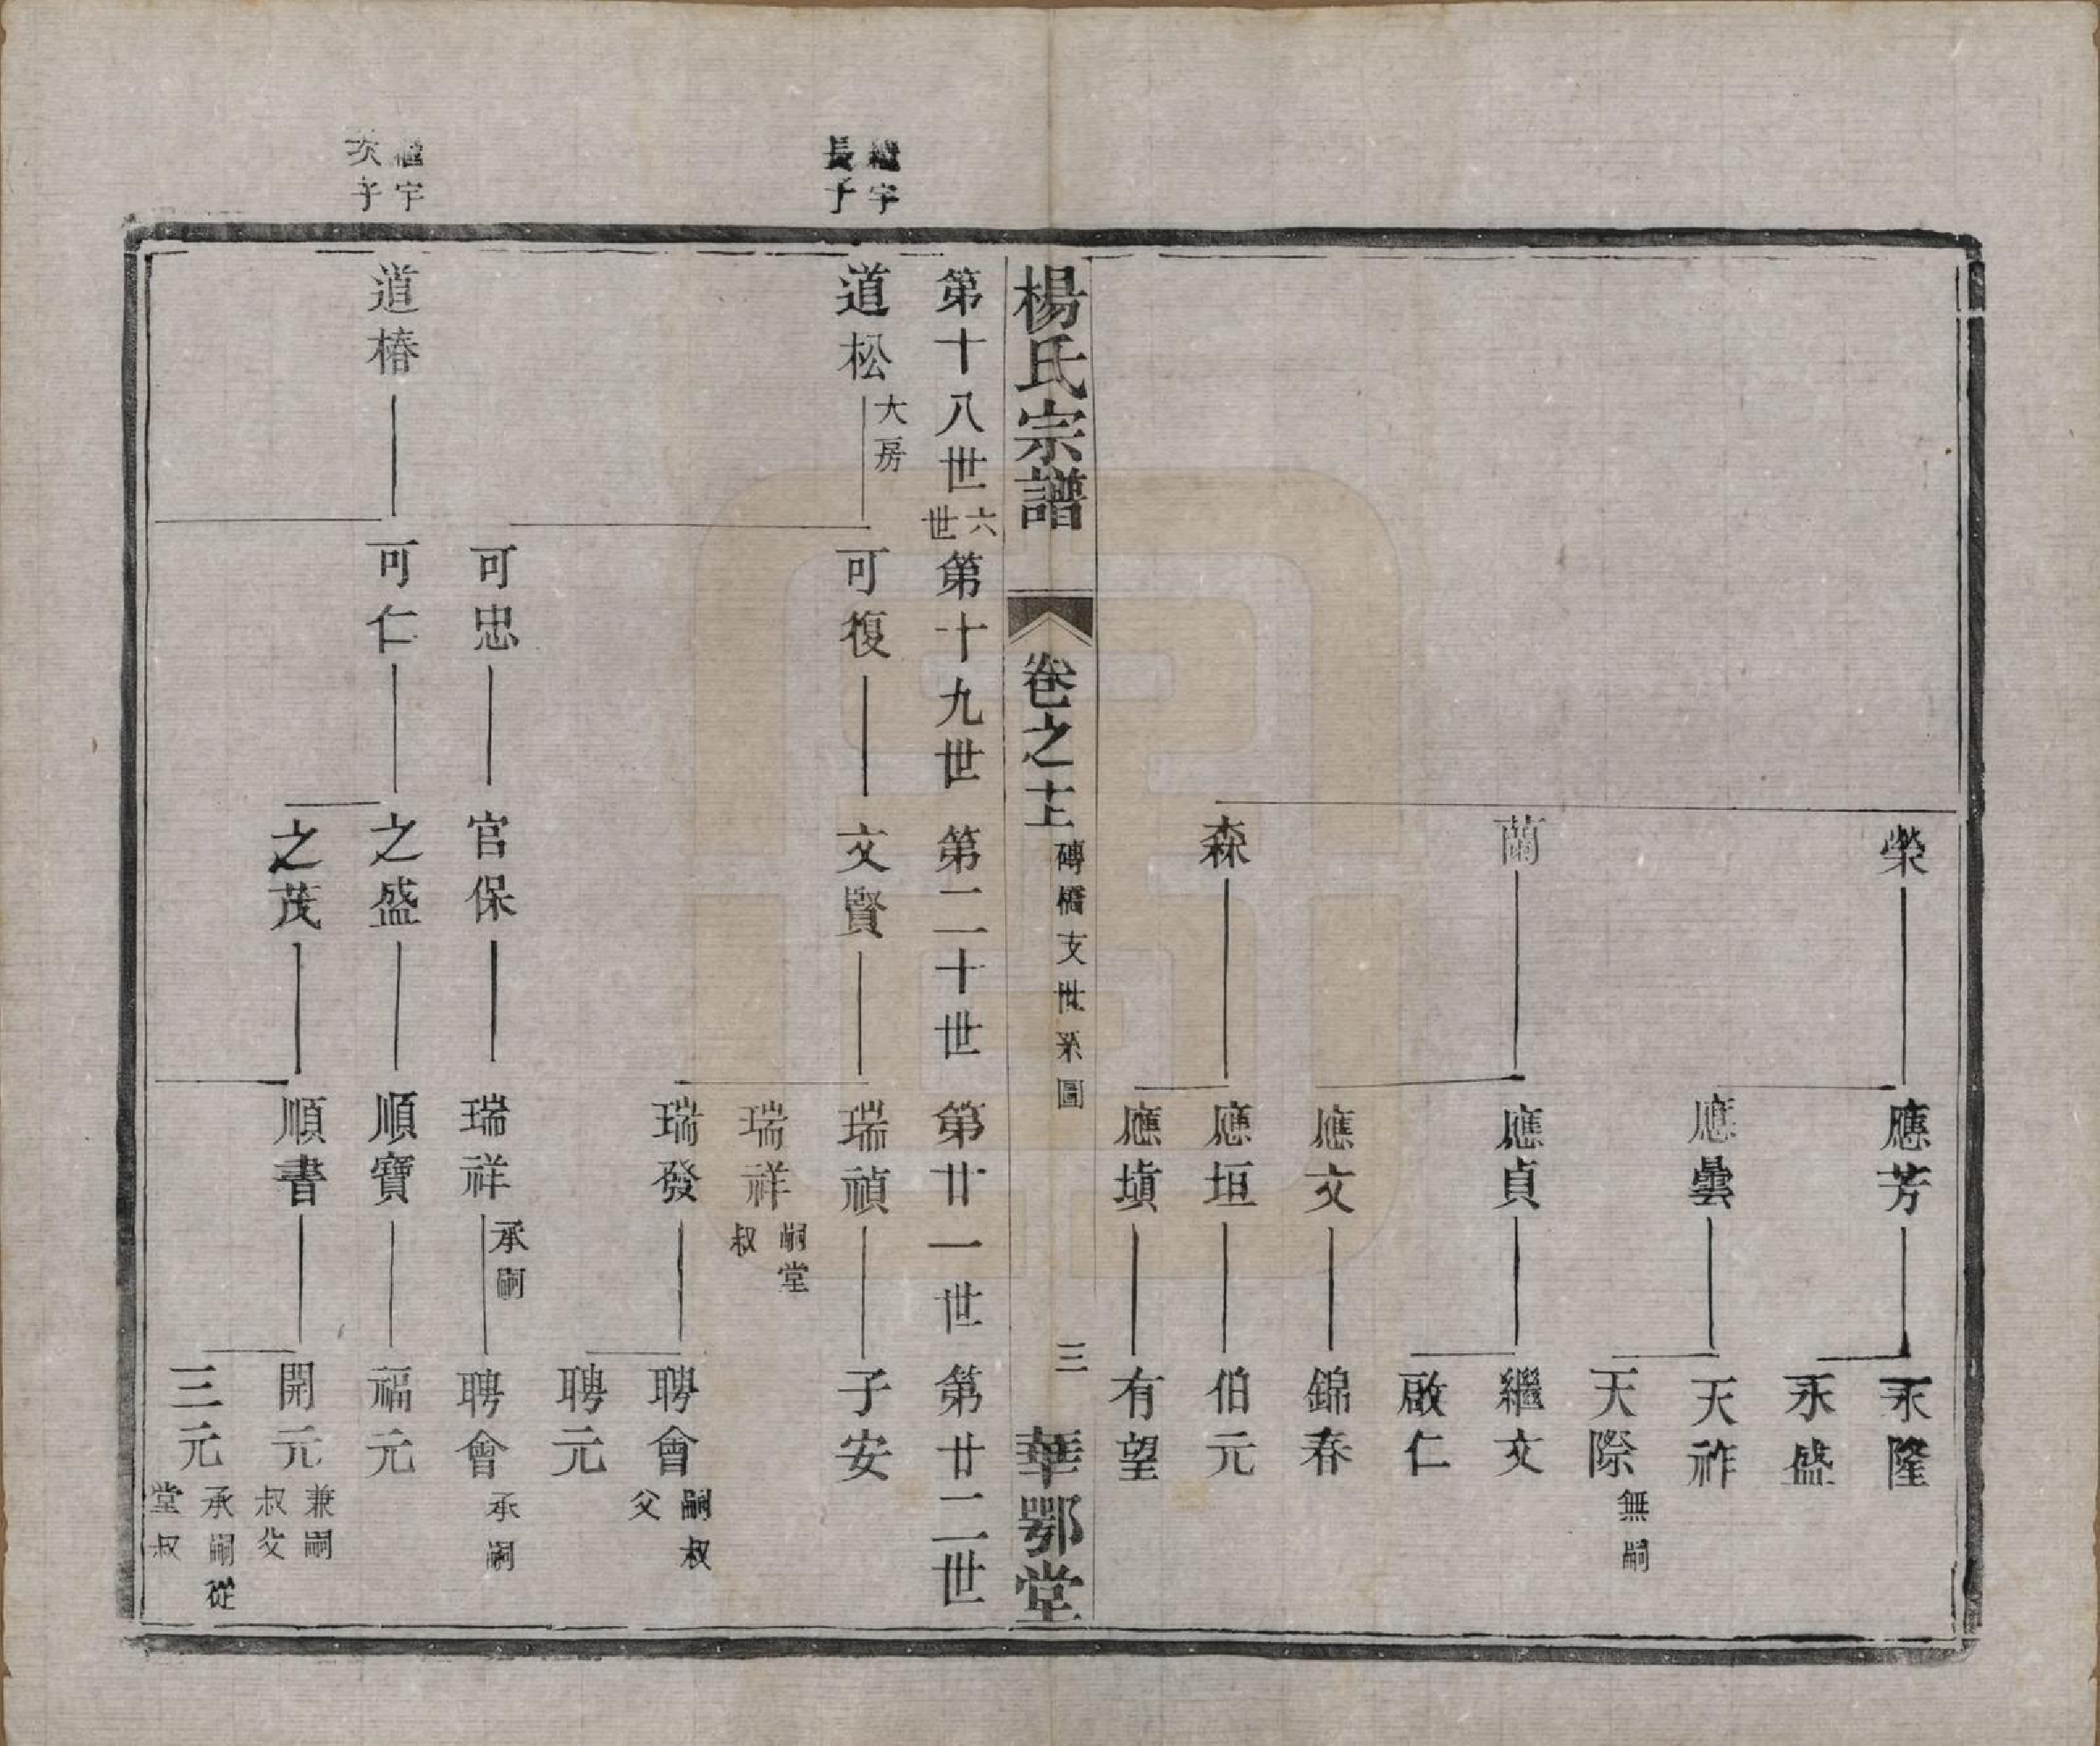 榮
蘭
森
應芳
應曇
應貞
應文
應垣
應塡
永隆
永盛
天祚
天際 無嗣
繼文
啟仁
錦春
伯元
有望
楊氏宗譜 卷之十 磚橋支世系圖 三 華鄂堂
第十八世 六世 第十九世 第二十世 第廿一世 第廿二世
繼宇
長子
道松 大房
可復
文賢
瑞禎
子安
瑞祥 嗣堂叔
瑞發
聘會 嗣叔父
聘元
可忠
官保
瑞祥 承嗣
聘會 承嗣
繼宇
次子
道椿
可仁
之盛
順寶
福元
之茂
順書
開元 兼嗣叔父
三元 承嗣從堂叔